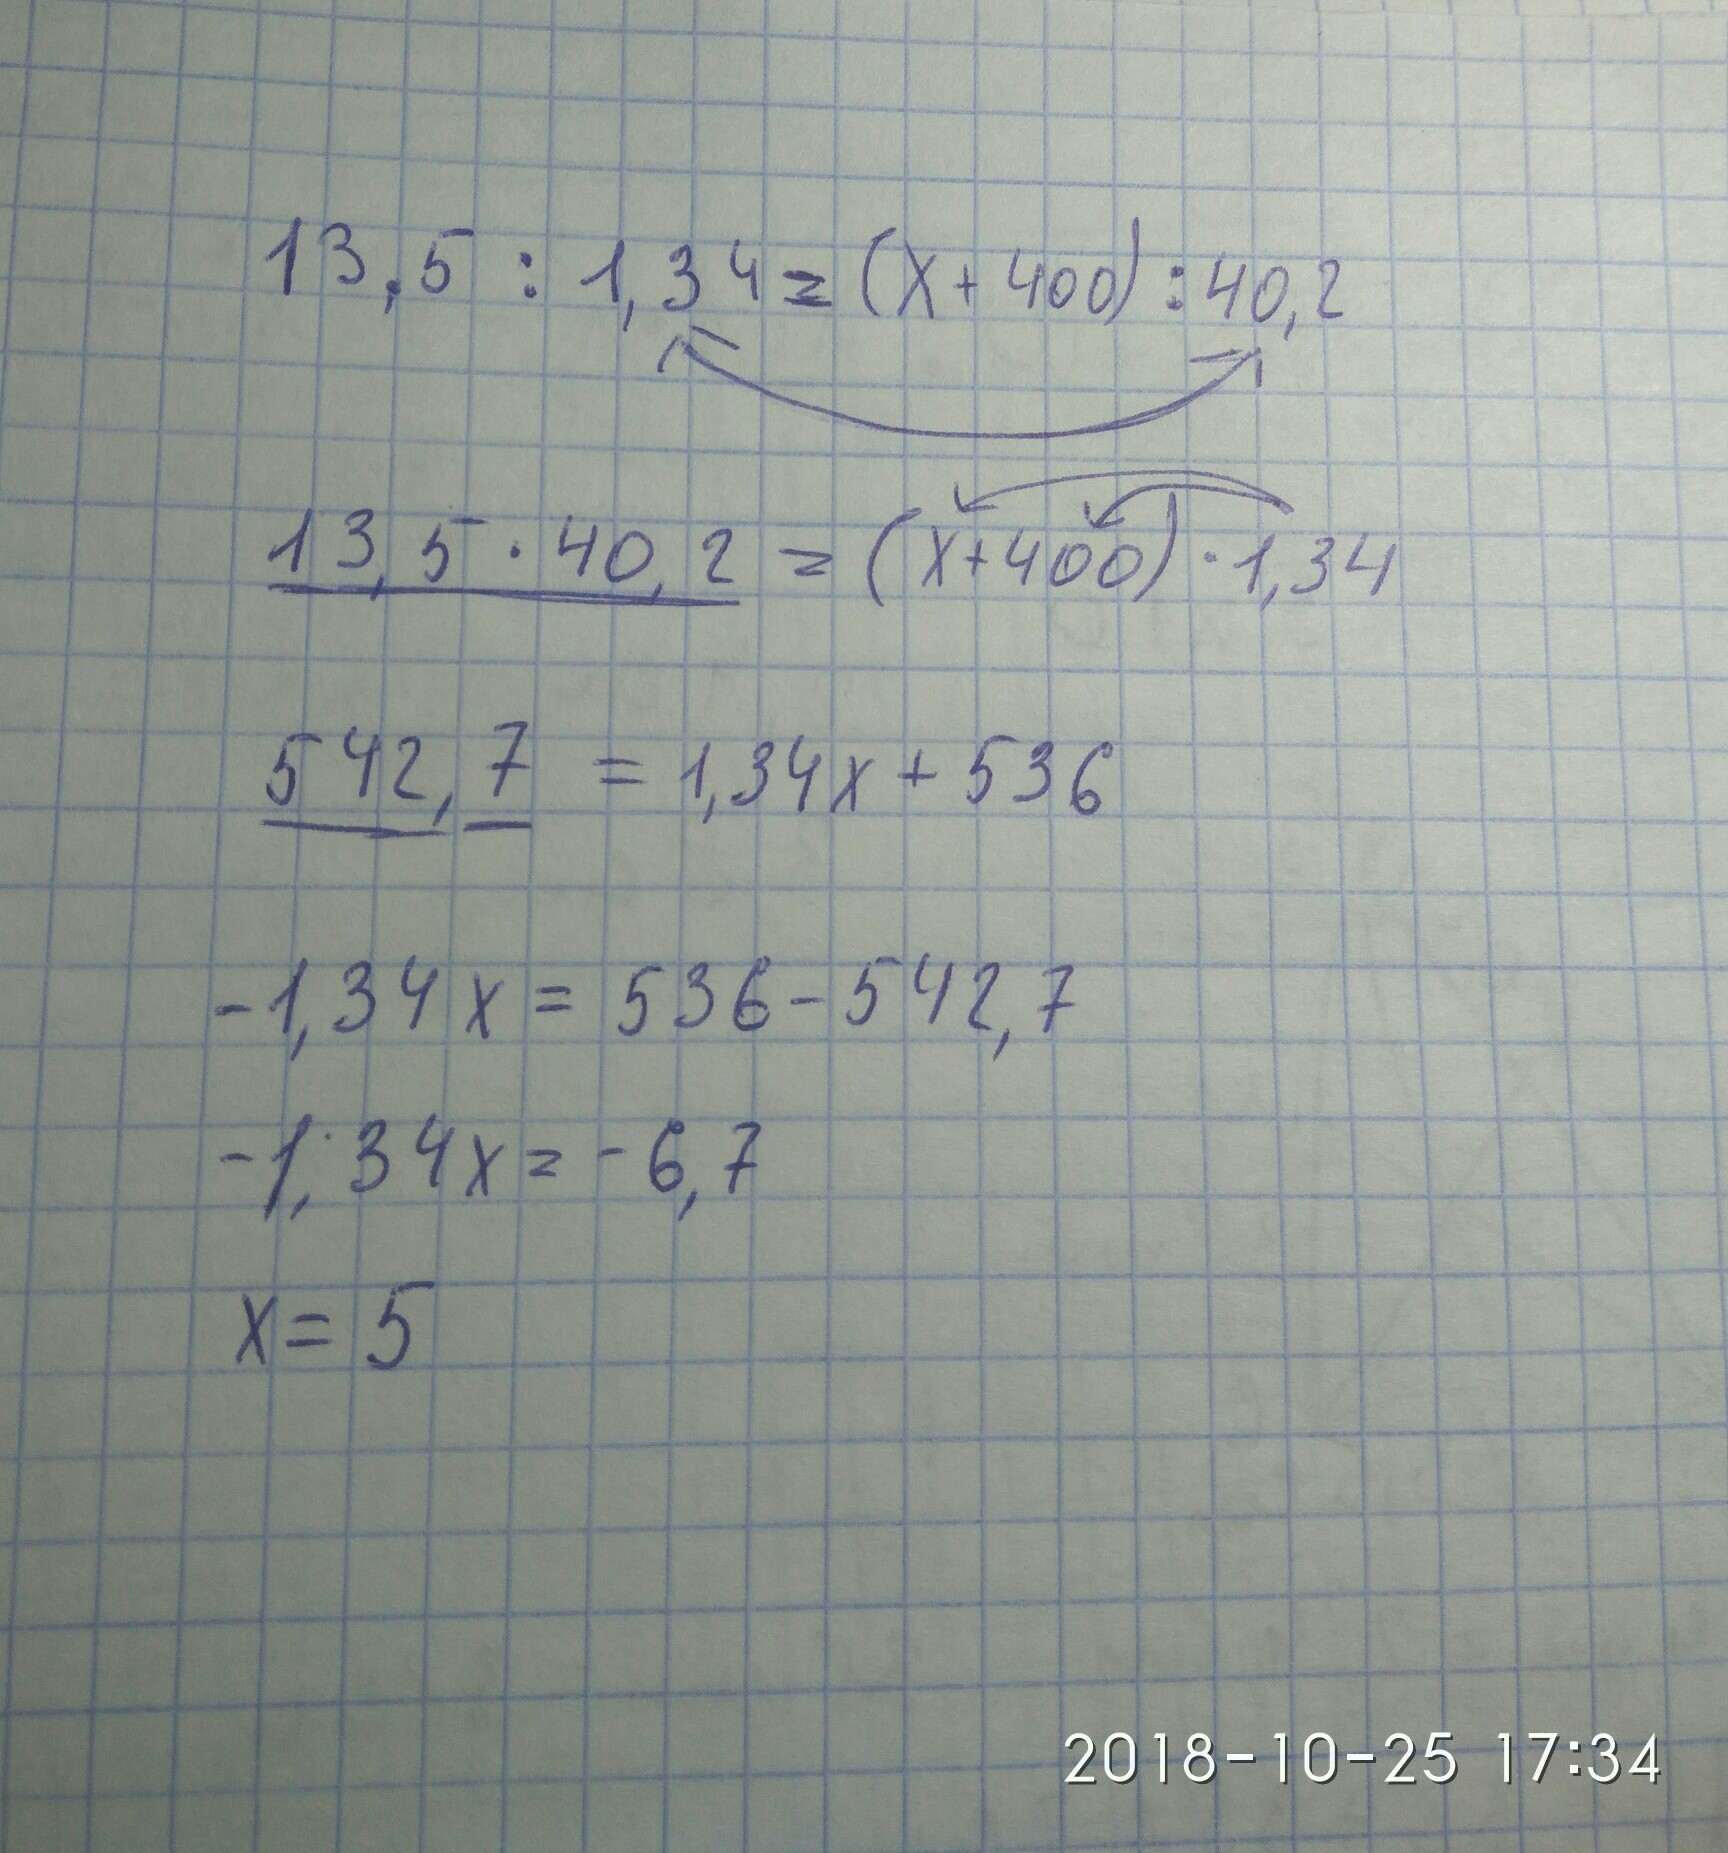 13,5 : 1,34 = (x + 400) : 40,2
13,5 · 40,2 = (x+400) · 1,34
542,7 = 1,34x + 536
-1,34x = 536 - 542,7
-1,34x = -6,7
x = 5
2018-10-25 17:34